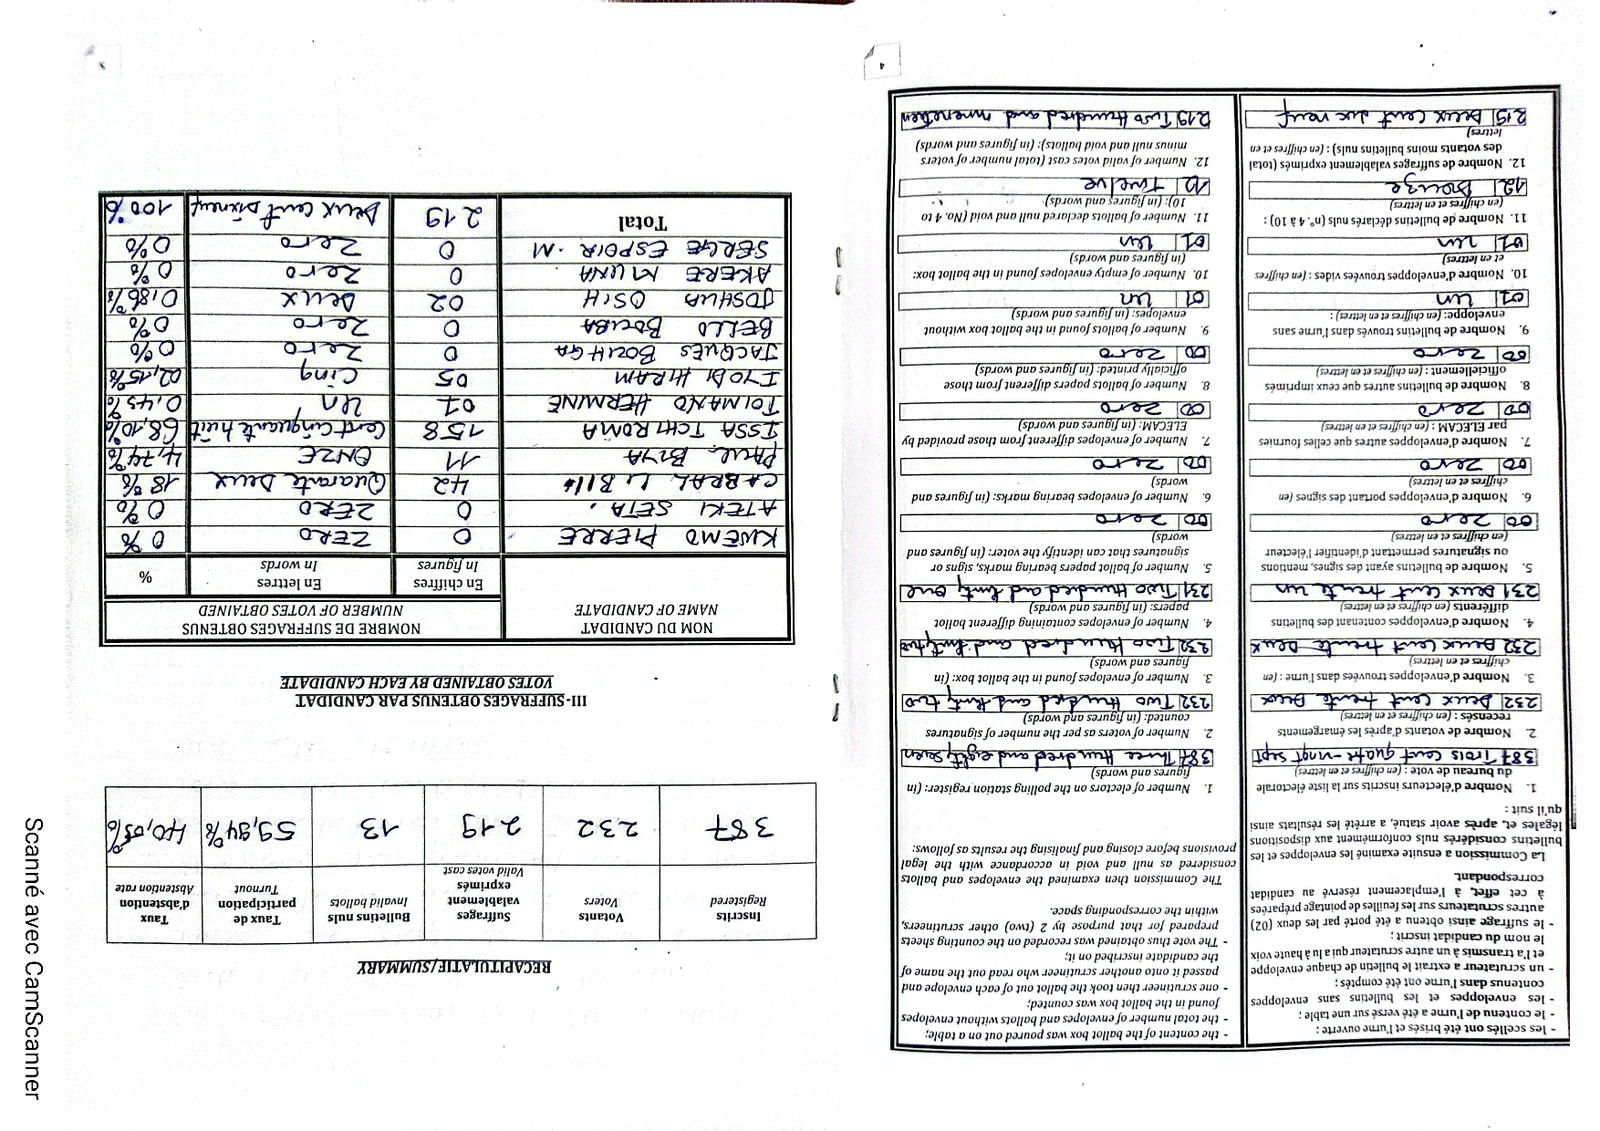 - les scellés ont été brisés et l'urne ouverte ;
- le contenu de l'urne a été versé sur une table ;
- les enveloppes et les bulletins sans enveloppes
contenus dans l'urne ont été comptés ;
- un scrutateur a extrait le bulletin de chaque enveloppe
et l'a transmis à un autre scrutateur qui a lu à haute voix
le nom du candidat inscrit ;
- le suffrage ainsi obtenu a été porté par les deux (02)
autres scrutateurs sur les feuilles de pointage préparées
à cet effet, à l'emplacement réservé au candidat
correspondant.
La Commission a ensuite examiné les enveloppes et les
bulletins considérés nuls conformément aux dispositions
légales et, après avoir statué, a arrêté les résultats ainsi
qu'il suit :
1. Nombre d'électeurs inscrits sur la liste électorale
du bureau de vote : (en chiffres et en lettres)
387 Trois cent quatre-vingt sept
2. Nombre de votants d'après les émargements
recensés : (en chiffres et en lettres)
232 Deux cent trente Deux
3. Nombre d'enveloppes trouvées dans l'urne : (en
chiffres et en lettres)
232 Deux cent trente Deux
4. Nombre d'enveloppes contenant des bulletins
différents (en chiffres et en lettres)
231 Deux cent trente un
5. Nombre de bulletins ayant des signes, mentions
ou signatures permettant d'identifier l'électeur
(en chiffres et en lettres)
00 zero
6. Nombre d'enveloppes portant des signes (en
chiffres et en lettres)
00 zero
7. Nombre d'enveloppes autres que celles fournies
par ELECAM : (en chiffres et en lettres)
00 zero
8. Nombre de bulletins autres que ceux imprimés
officiellement : (en chiffres et en lettres)
00 zero
9. Nombre de bulletins trouvés dans l'urne sans
enveloppe: (en chiffres et en lettres) :
01 un
10. Nombre d'enveloppes trouvées vides : (en chiffres
et en lettres)
01 un
11. Nombre de bulletins déclarés nuls (n°. 4 à 10) :
(en chiffres et en lettres)
12 Douze
12. Nombre de suffrages valablement exprimés (total
des votants moins bulletins nuls) : (en chiffres et en
lettres)
219 Deux cent dix neuf
- the content of the ballot box was poured out on a table;
- the total number of envelopes and ballots without envelopes
found in the ballot box was counted;
- one scrutineer then took the ballot out of each envelope and
passed it onto another scrutineer who read out the name of
the candidate inscribed on it;
- The vote thus obtained was recorded on the counting sheets
prepared for that purpose by 2 (two) other scrutineers,
within the corresponding space.
The Commission then examined the envelopes and ballots
considered as null and void in accordance with the legal
provisions before closing and finalising the results as follows:
1. Number of electors on the polling station register: (in
figures and words)
387 Three Hundred and eighty seven
2. Number of voters as per the number of signatures
counted: (in figures and words)
232 Two Hundred and thirty two
3. Number of envelopes found in the ballot box: (in
figures and words)
232 Two Hundred and thirty two
4. Number of envelopes containing different ballot
papers: (in figures and words)
231 Two Hundred and thirty one
5. Number of ballot papers bearing marks, signs or
signatures that can identify the voter: (in figures and
words
00 zero
6. Number of envelopes bearing marks: (in figures and
words)
00 zero
7. Number of envelopes different from those provided by
ELECAM: (in figures and words)
00 zero
8. Number of ballots papers different from those
officially printed: (in figures and words)
00 zero
9. Number of ballots found in the ballot box without
envelopes: (in figures and words)
01 un
10. Number of empty envelopes found in the ballot box:
(in figures and words)
01 un
11. Number of ballots declared null and void (No. 4 to
10): (in figures and words)
12 Twelve
12. Number of valid votes cast (total number of voters
minus null and void ballots): (in figures and words)
219 Two Hundred and nineteen
4
RECAPITULATIF/SUMMARY
Inscrits Registered | Votants Voters | Suffrages valablement exprimés Valid votes cast | Bulletins nuls Invalid ballots | Taux de participation Turnout | Taux d'abstention Abstention rate
387 | 232 | 219 | 13 | 59,94% | 40,05%
III-SUFFRAGES OBTENUS PAR CANDIDAT
VOTES OBTAINED BY EACH CANDIDATE
NOM DU CANDIDAT NAME OF CANDIDATE | NOMBRE DE SUFFRAGES OBTENUS NUMBER OF VOTES OBTAINED
En chiffres In figures | En lettres In words | %
KWEMO PIERRE | 0 | ZERO | 0%
ATEKI SETA. | 0 | ZERO | 0%
CABRAL LIBII | 42 | Quarante Deux | 18%
PAUL BIYA | 11 | ONZE | 4,74%
ISSA TCHIROMA | 158 | Cent cinquante huit | 68,10%
TOIMANO HERMINE | 01 | Un | 0,43%
IYODI HIRAM | 05 | Cinq | 02,15%
JACQUES BOUHGA | 0 | Zero | 0%
BELLO BOUBA | 0 | Zero | 0%
JOSHUA OSIH | 02 | Deux | 0,86%
AKERE MUNA | 0 | Zero | 0%
SERGE ESPOIR . M | 0 | Zero | 0%
Total | 219 | Deux cent Dixneuf | 100%
Scanné avec CamScanner